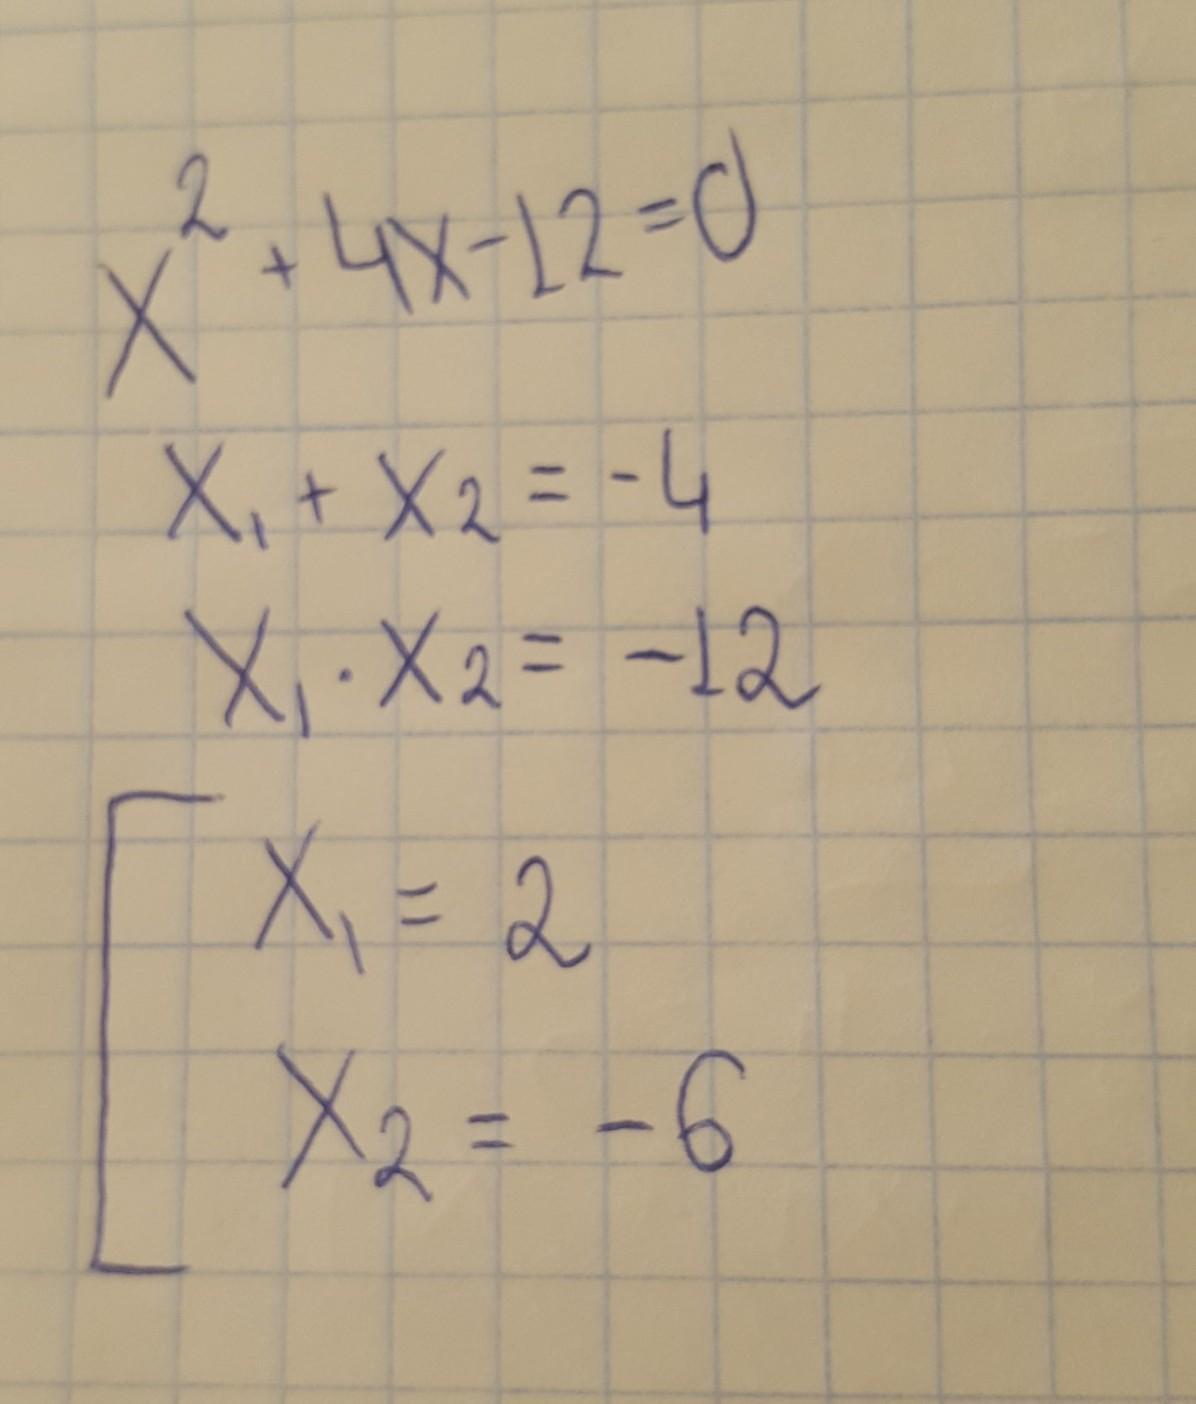 x² + 4x - 12 = 0
x₁ + x₂ = -4
x₁ · x₂ = -12
x₁ = 2
x₂ = -6